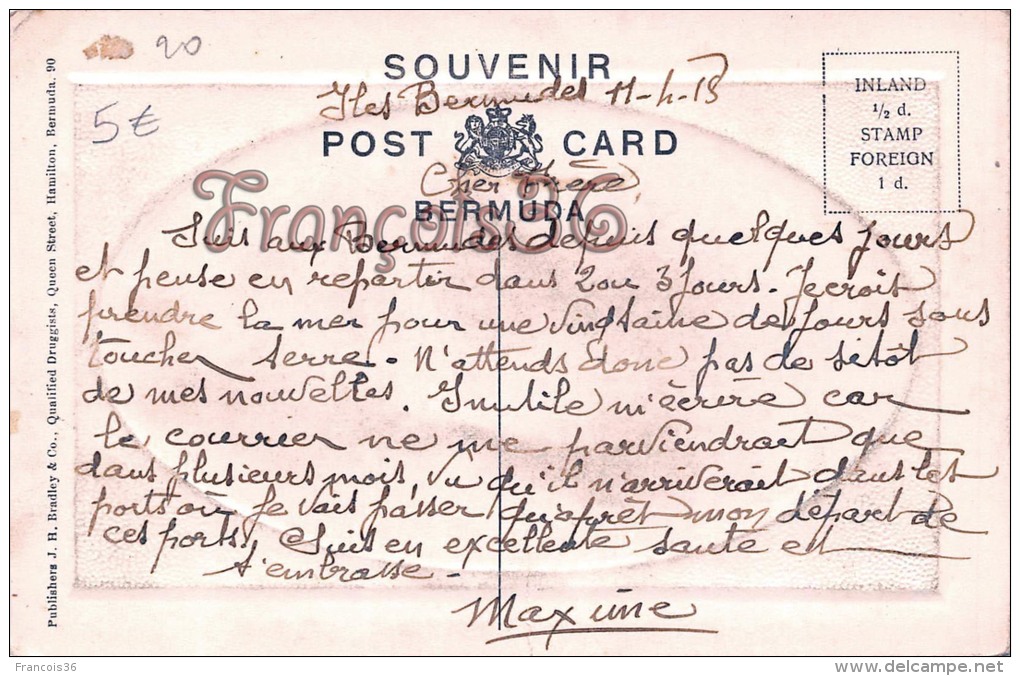 20
5€
SOUVENIR
Iles Bermudes 11-4-13
POST CARD
Cher Frère,
BERMUDA
François36
INLAND
1/2 d.
STAMP
FOREIGN
1 d.
Suis aux Bermudes depuis quelques jours
et pense en repartir dans 2 ou 3 jours. Je crois
prendre la mer pour une vingtaine de jours sans
toucher terre. N'attends donc pas de sitôt
de mes nouvelles. Inutile m'écrire car
le courrier ne me parviendrait que
dans plusieurs mois, vu qu'il n'arriverait dans les
ports où je vais passer qu'après mon départ de
ces ports. Suis en excellente santé et
t'embrasse.
Maxime
Publishers J. H. Bradley & Co., Qualified Druggists, Queen Street, Hamilton, Bermuda. 90
Francois36
www.delcampe.net